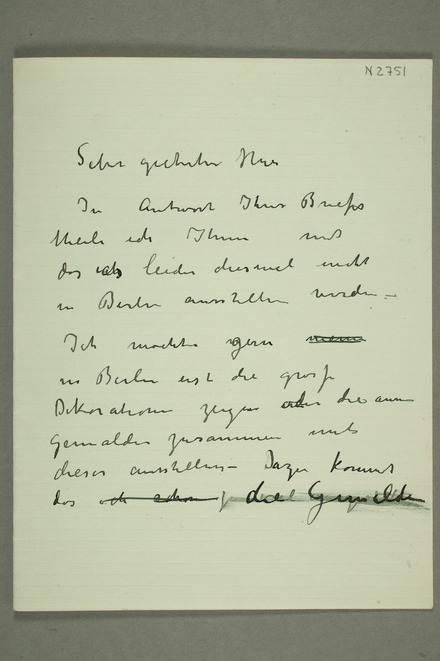 N 2751
Sehr geehrter Herr
In Antwort Ihres Briefes
theile ich Ihnen mit
das ich leider diesmal nicht
in Berlin ausstellen werde –
Ich möchte gern
in Berlin erst die grosse
Dekorationen zeigen oder die
Gemälde zusammen mit
dieser ausstellen – Dazu kommt
das ich schon die Gemälde